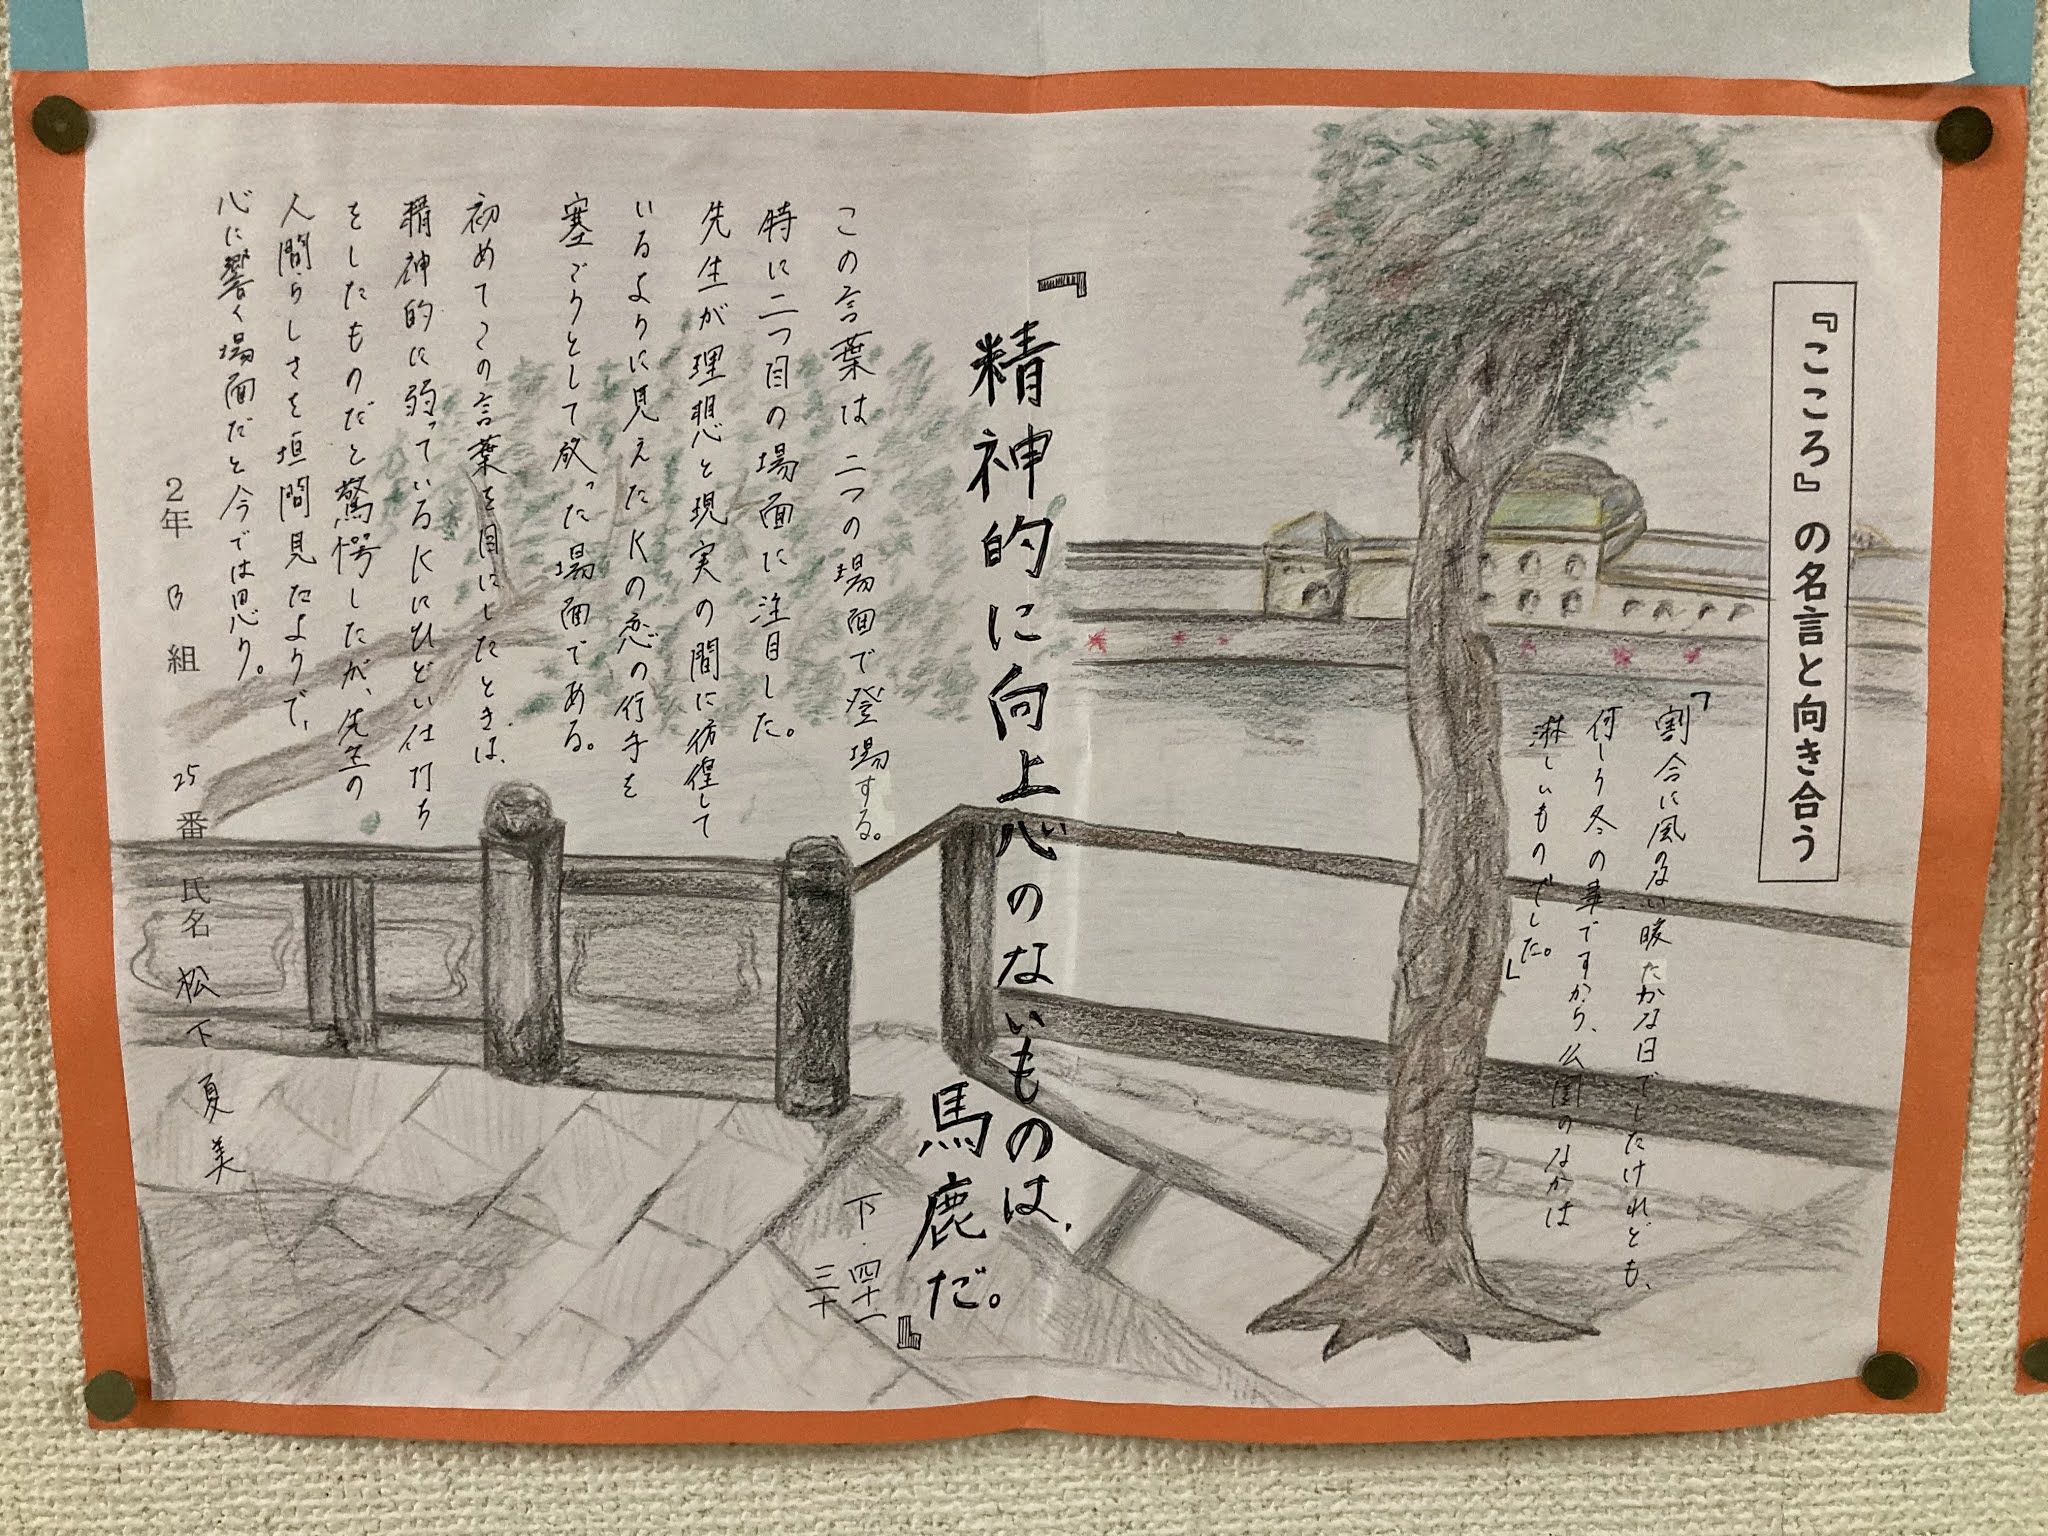 『こころ』の名言と向き合う
「割合に風のない暖たかな日でしたけれども、
何しろ冬の事ですから、公園のなかは
淋しいものでした。」
『精神的に向上心のないものは、
馬鹿だ。』
下・四十一
三十
この言葉は二つの場面で登場する。
特に二つ目の場面に注目した。
先生が理想と現実の間に彷徨して
いるように見えたKの恋の行手を
塞ごうとして放った場面である。
初めてこの言葉を目にしたときは、
精神的に弱っているKにひどい仕打ち
をしたものだと驚愕したが、先生の
人間らしさを垣間見たようで、
心に響く場面だと今では思う。
2年 B組 25番 氏名 松下夏美